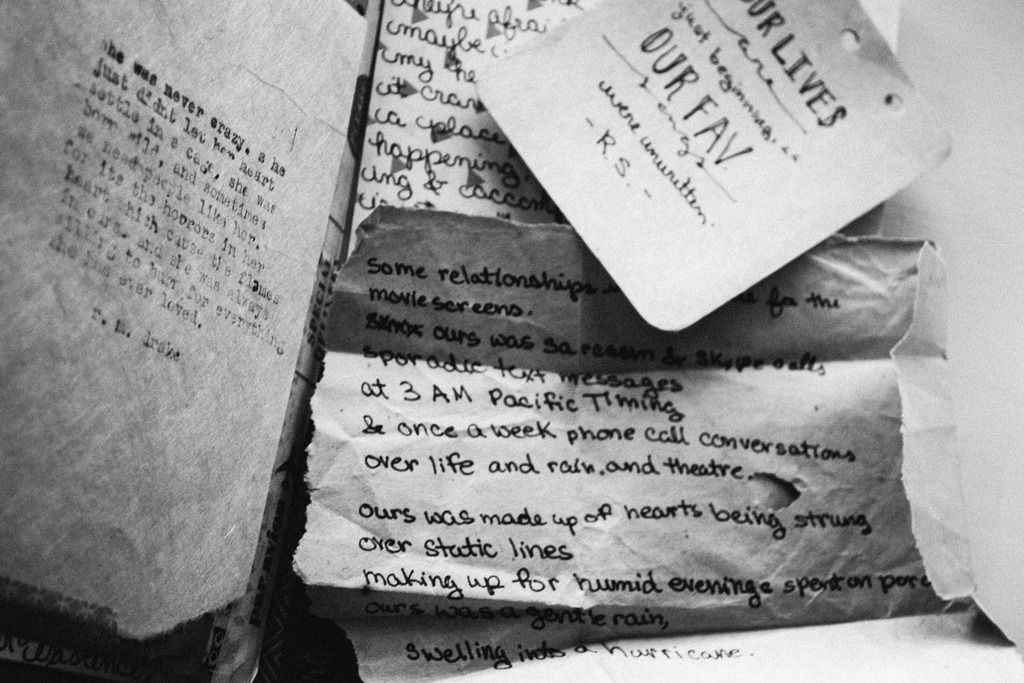 she was never crazy. she
just didnt let her heart
settle in a cage. she was
born wild, and sometimes
we need people like her.
for its the horrors in her
heart which cause the flames
in ours. and she was always
willing to burn for everything
she has ever loved.
r. m. drake
they're afrai
maybe i
my he
it cra
a place
happening.
ing &
OUR LIVES
are
just beginning..
OUR FAV.
songs
were unwritten.
- R.S. -
some relationships for the
moviescreens.
ours was sarcasm & skype calls
sporadic text messages
at 3 AM Pacific Timing
& once a week phone call conversations
over life and rain, and theatre.
ours was made up of hearts being strung
over static lines
making up for humid evenings spent on porc
ours was a gentle rain,
swelling into a hurricane.